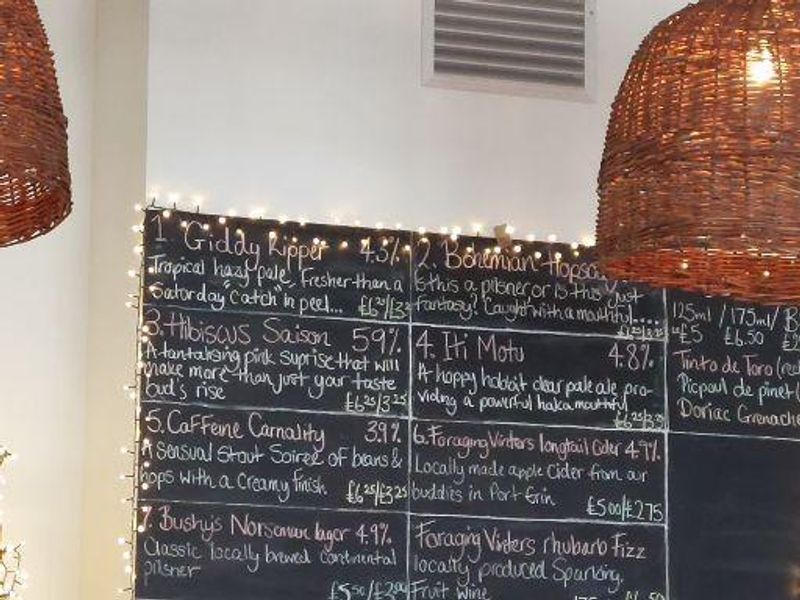 1 Giddy Kipper 4.3%
Tropical hazy pale. Fresher than a
Saturday "catch" in peel...
£6.25/
2. Bohemian
is this a pilsner or is this just
fantasy? Caught with a mouthful....
3. Hibiscus Saison 5.9%
A tantalising pink suprise that will
make more than just your taste
bud's rise
£6.25/3.25
4. Iti Motu 4.8%
A hoppy hobbit clear pale ale pro-
viding a powerful haka mouthful
£6.25/3.25
5. Caffeine Carnality 3.9%
A sensual Stout Soiree of beans &
hops with a Creamy finish
£6.25/£3.25
6. Foraging Vinters longtail Cider 4.9%
Locally made apple Cider from our
buddies in Port Erin
£5.00/£2.75
7. Bushy's Norseman lager 4.9%
Classic locally brewed Continental
pilsner
£5.50/
Foraging Vinters rhubarb Fizz
locally produced Sparkling.
Fruit wine
125ml / 175ml /
£5 £6.50
Tinto de Toro
Picpoul de pinet
Doriac Grenache